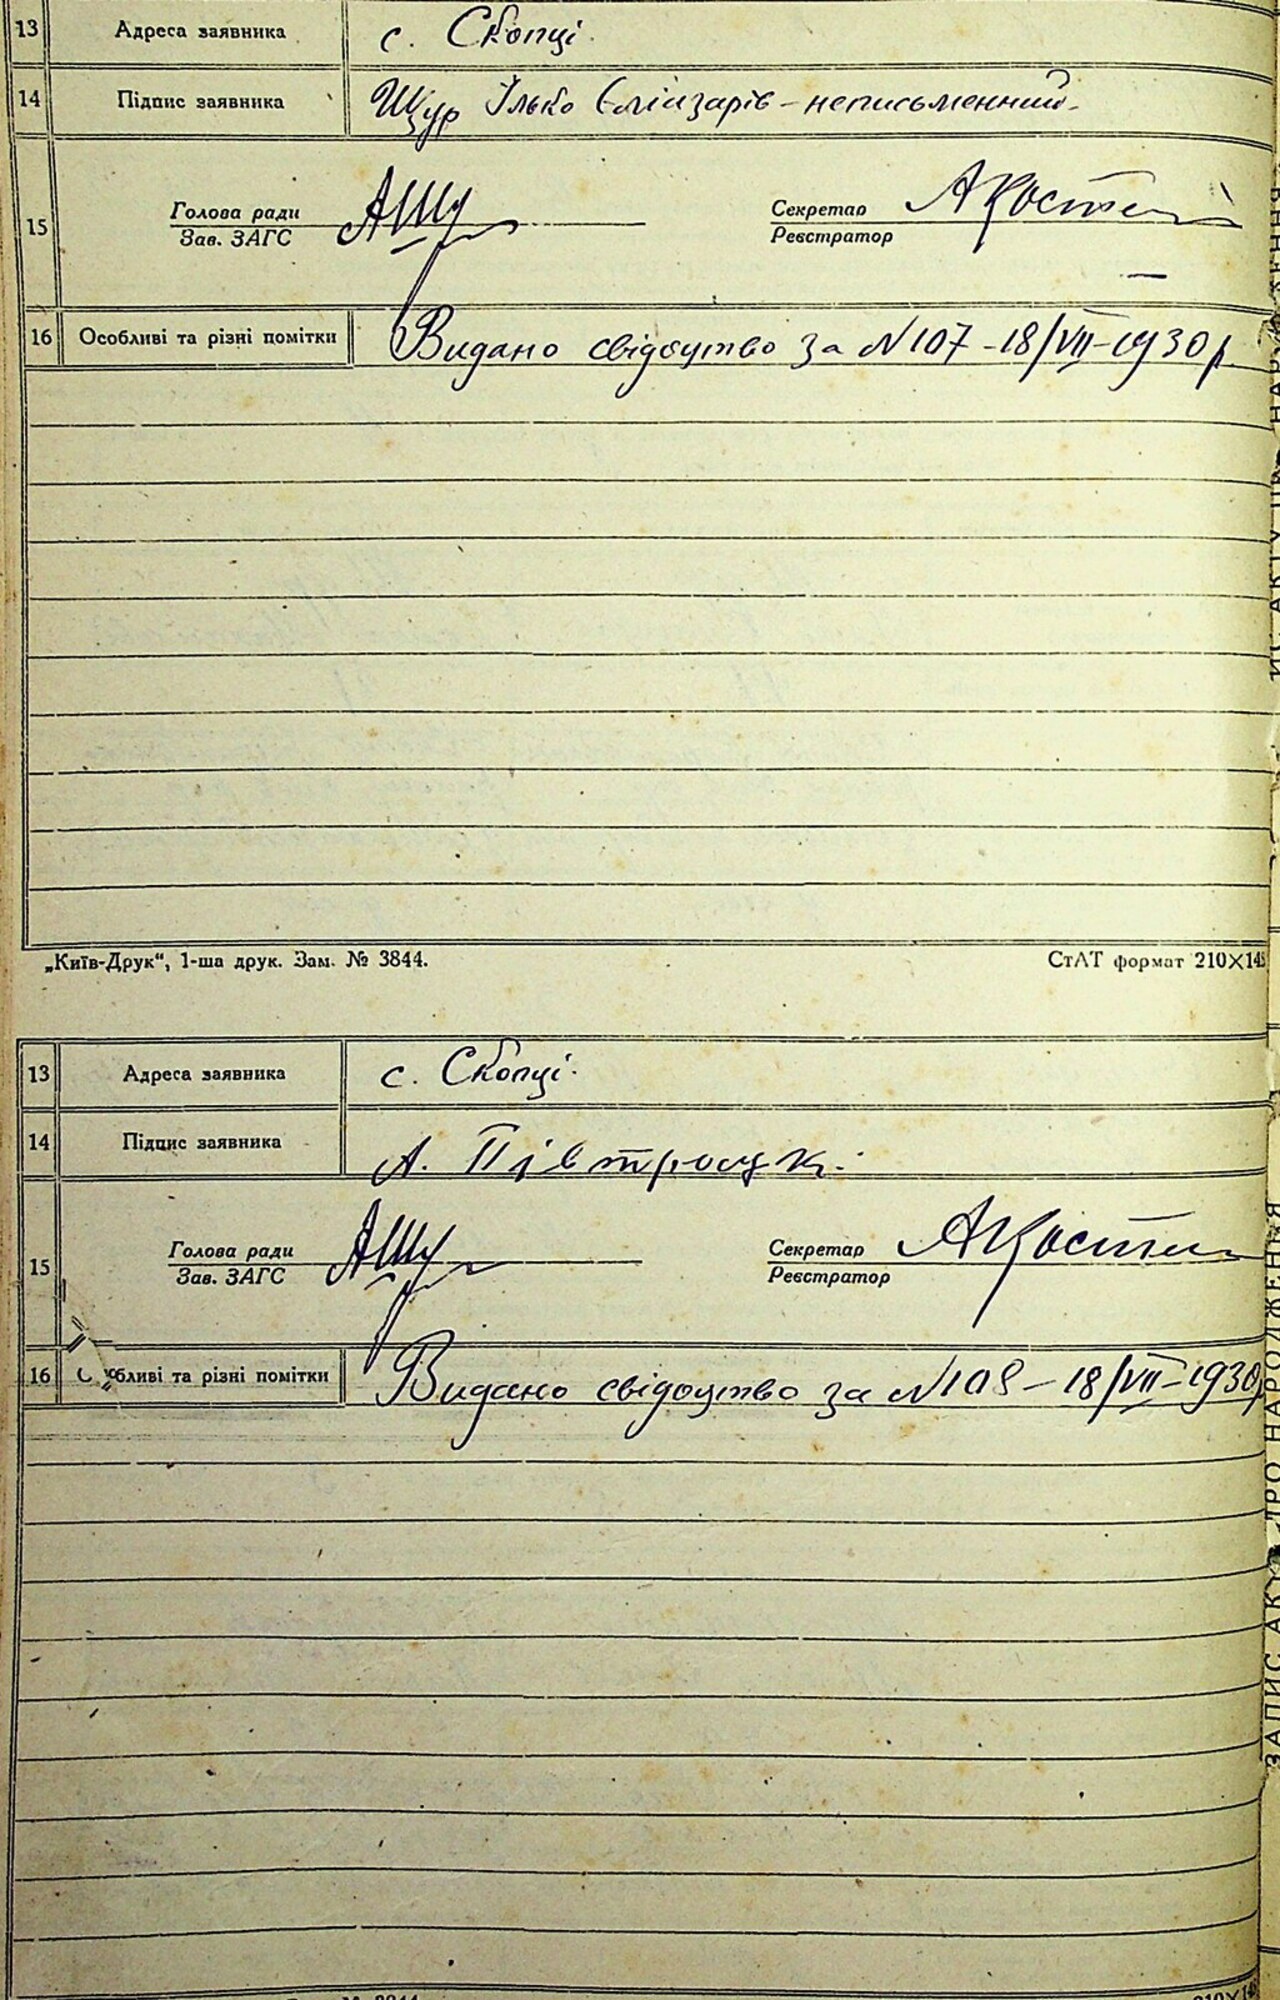 13 Адреса заявника с. Скопці.
14 Підпис заявника Щур Ілько Єлізарів - неписьменний.
15 Голова ради Секретар
Зав. ЗАГС Реєстратор
16 Особливі та різні помітки Видано свідоцтво за №107 - 18/VII-1930 р
„Київ-Друк“, 1-ша друк. Зам. № 3844. СтАТ формат 210×145
13 Адреса заявника с. Скопці.
14 Підпис заявника А. Півторацк.
15 Голова ради Секретар
Зав. ЗАГС Реєстратор
16 Особливі та різні помітки Видано свідоцтво за №108 - 18/VII-1930
ЗАПИС АКТУ ПРО НАРОДЖЕННЯ